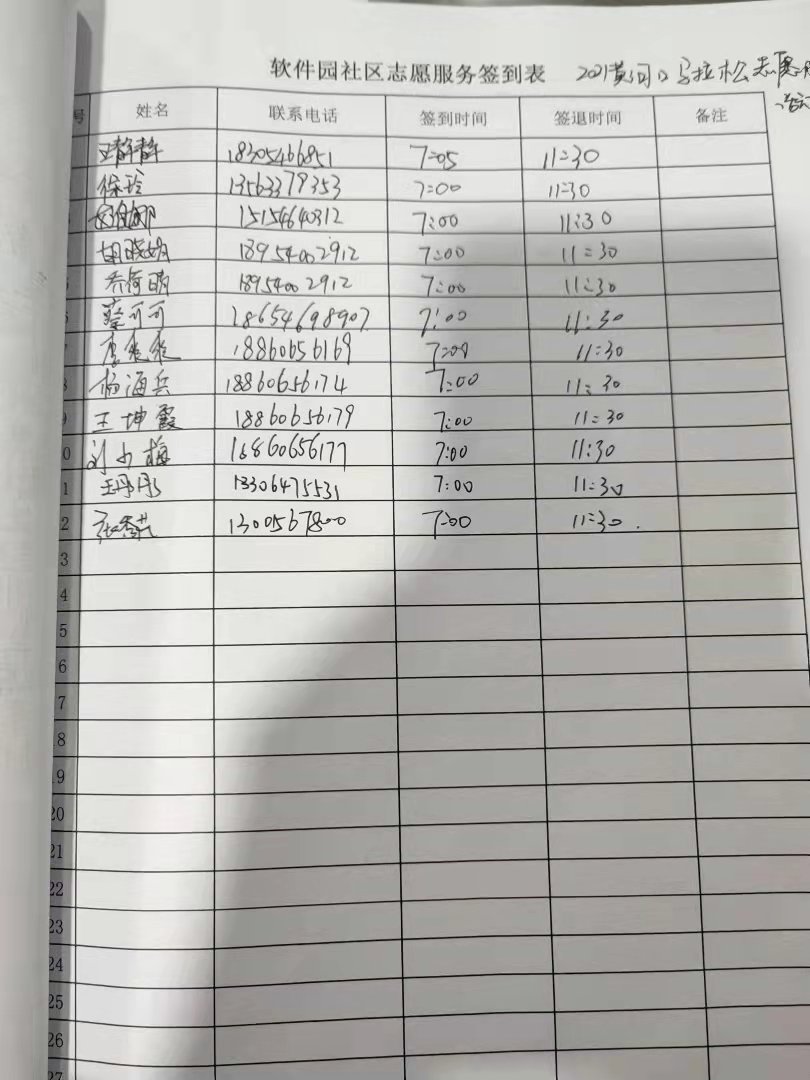 软件园社区志愿服务签到表 2021黄河口马拉松志愿服
活动
号 姓名 联系电话 签到时间 签退时间 备注
王静静 18305466851 7:05 11:30
徐玲 13563379353 7:00 11:30
15154640312 7:00 11:30
胡晓娟 18954002912 7:00 11:30
乔荷明 18954002912 7:00 11:30
6 蔡可可 18654698907 7:00 11:30
7 18860656169 7:00 11:30
8 杨海兵 18860656174 7:00 11:30
9 王坤霞 18860656179 7:00 11:30
0 刘少梅 18860656177 7:00 11:30
1 王丹彤 18306475531 7:00 11:30
2 1300567800 7:00 11:30.
3
4
5
6
7
8
19
20
21
22
23
24
25
26
27